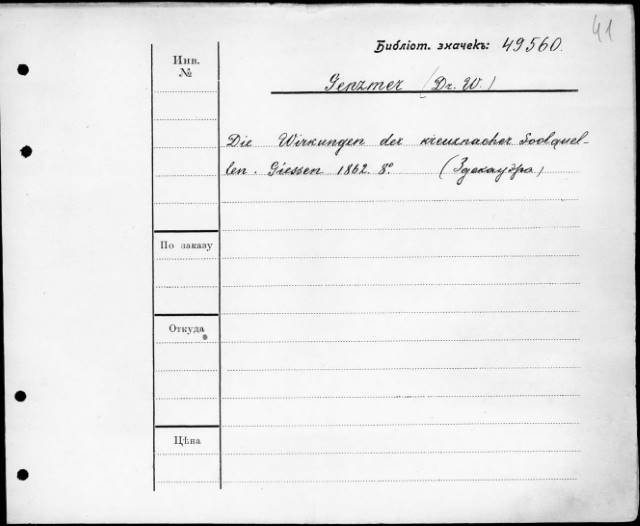 41
Библіот. значекъ: 49560.
Инв.
№
Genzmer (Dr. W.)
Die Wirkungen der kreuznacher Soolquel-
len. Giessen 1862. 8°. (Здекауэра)
По заказу
Откуда
Цѣна